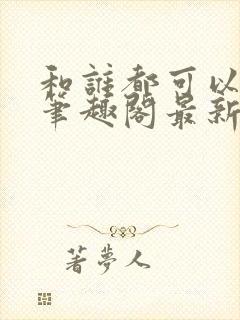 和誰都可以
筆趣閣最新
著夢人